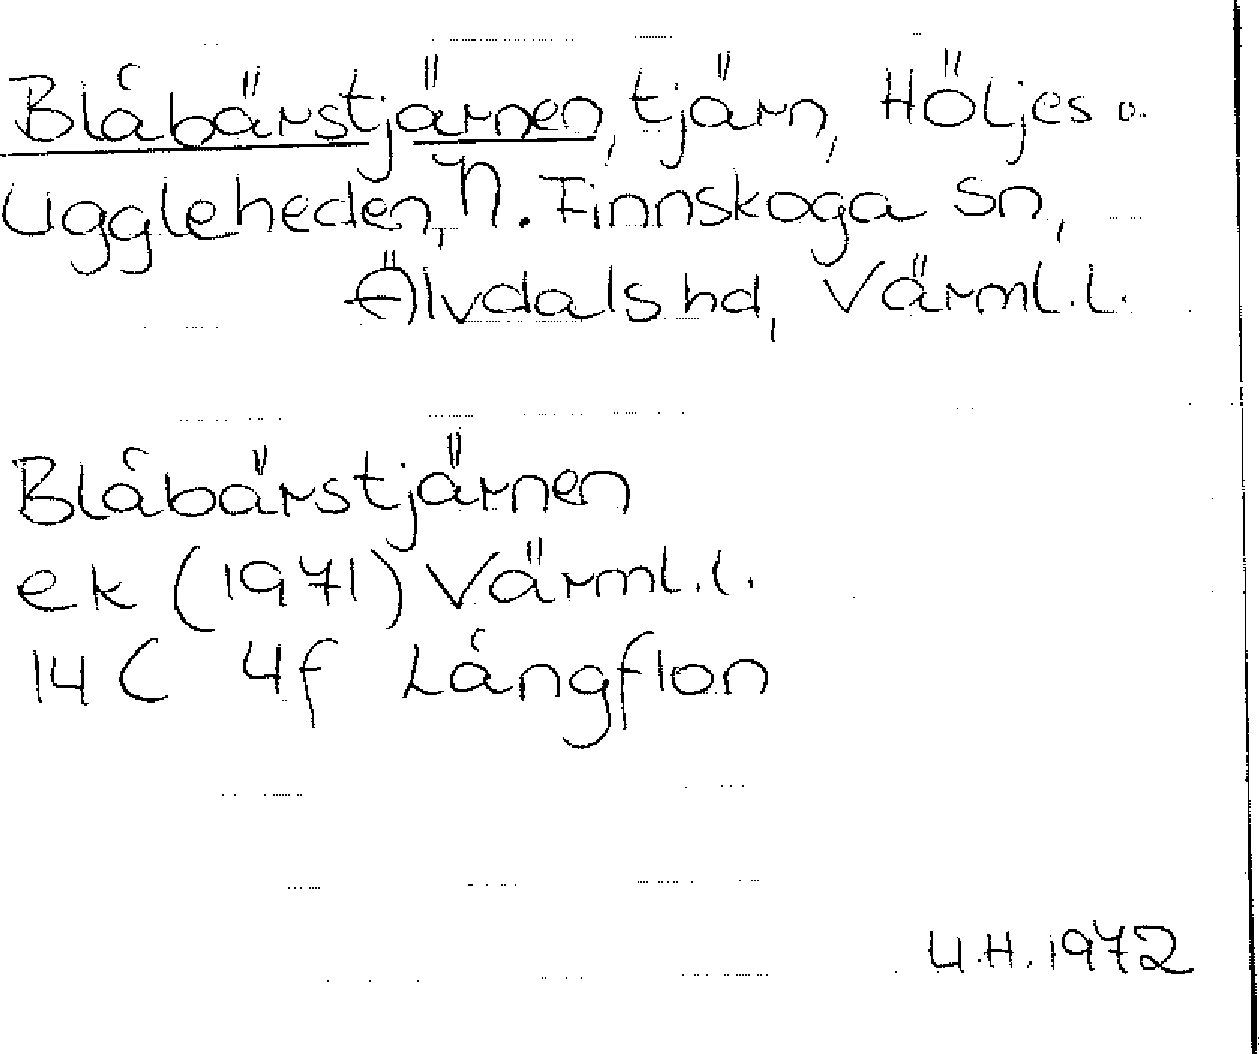 Blåbärstjärnen, tjärn, Höljes o.
Uggleheden, N. Finnskoga Sn,
Älvdals hd, Värml.l.
Blåbärstjärnen
ek (1971) Värml.l.
14C 4f Långflon
U.H. 1972